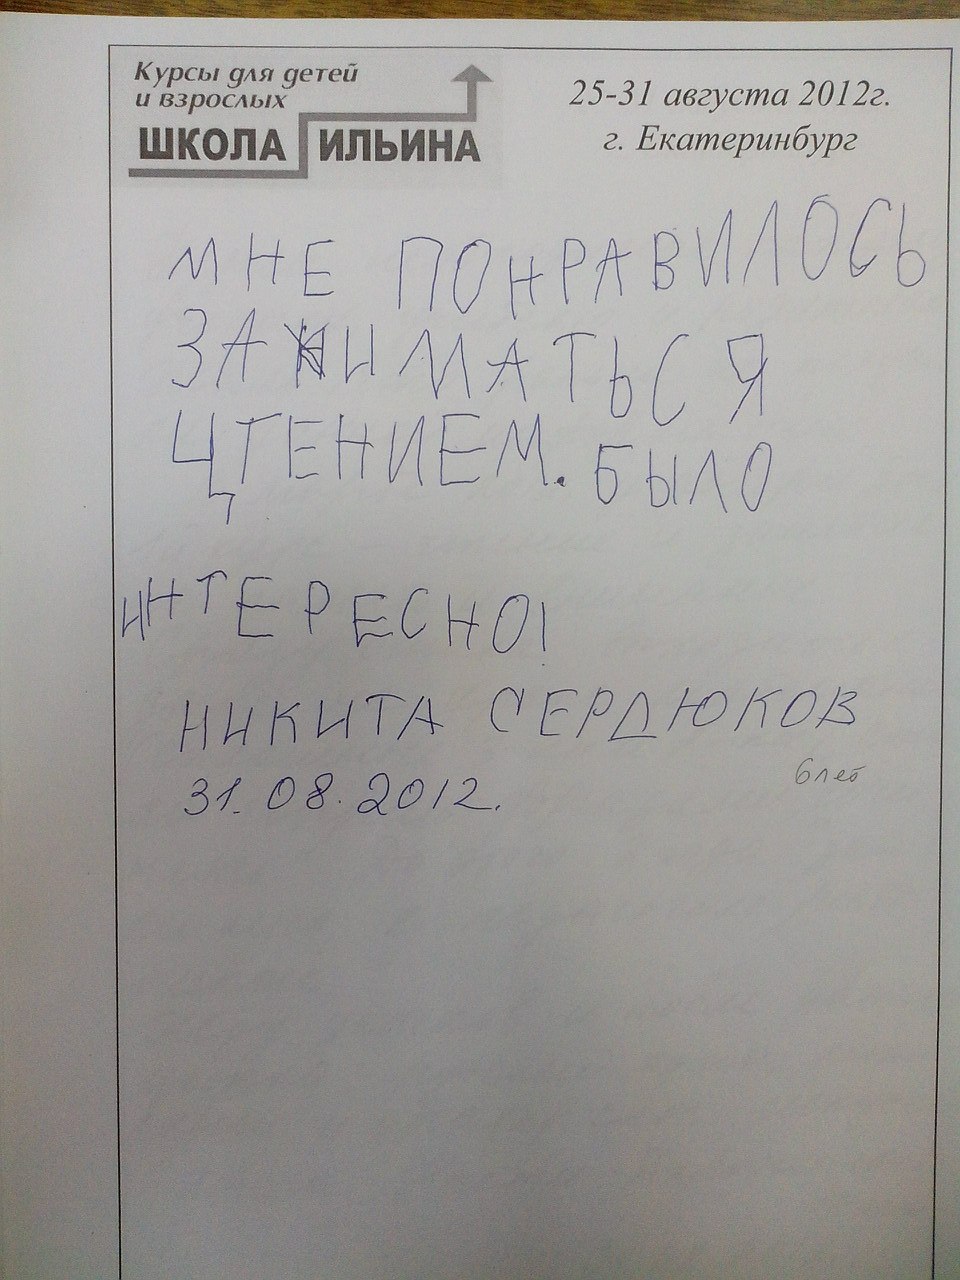 Курсы для детей
и взрослых
ШКОЛА ИЛЬИНА
25-31 августа 2012г.
г. Екатеринбург
МНЕ ПОНРАВИЛОСЬ
ЗАНИМАТЬСЯ
ЧТЕНИЕМ. БЫЛО
ИНТЕРЕСНО!
НИКИТА СЕРДЮКОВ
6 лет
31.08.2012.